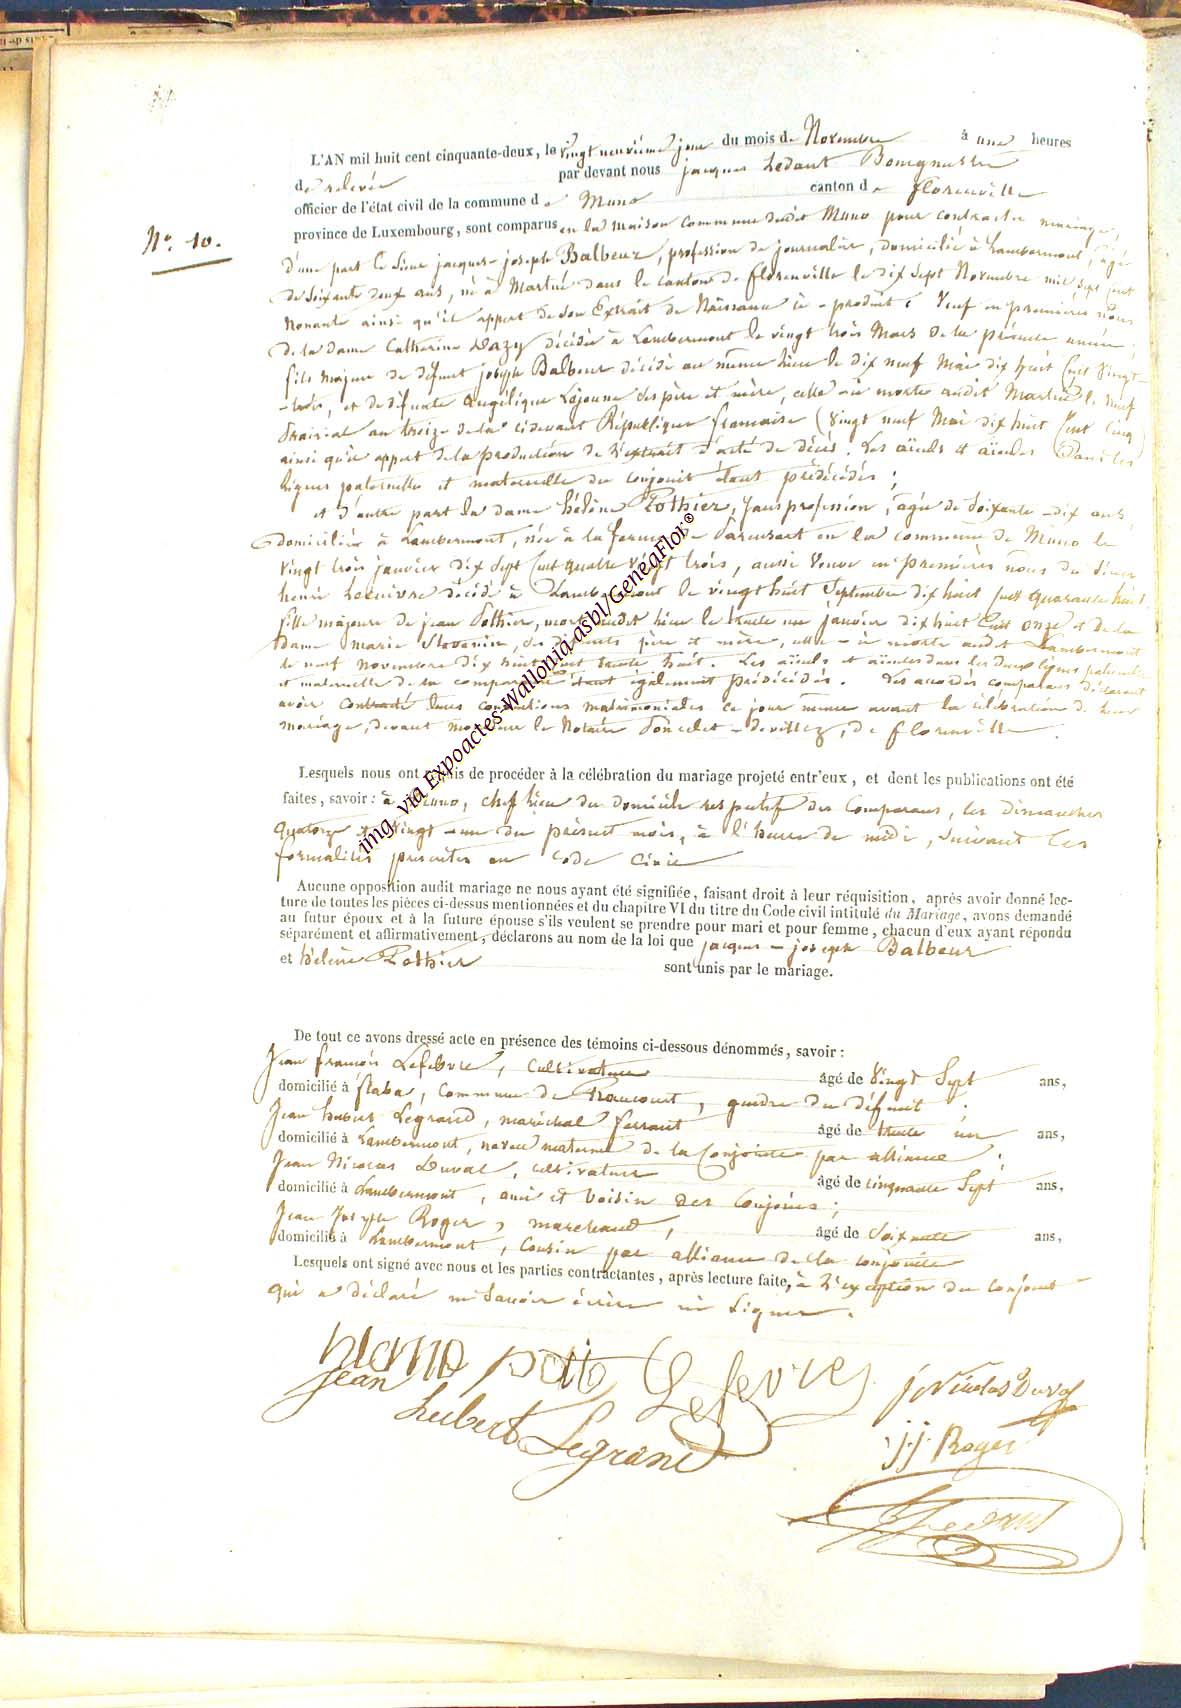 L'AN mil huit cent cinquante-deux, le vingt neuvième jour du mois de Novembre à une heures
de relevée par devant nous jacques Ledant Bourgmestre
officier de l'état civil de la commune de Muno canton de florenville
province de Luxembourg, sont comparus en la maison commune dudit Muno pour contracter mariage,
N° 10.
d'une part le sieur jacques-joseph Balbeur, profession de journalier, domicilié à Lambermont, âgé
de soixante deux ans, né à Martué dans le canton de florenville le dix sept Novembre mil sept cent
nonante ainsi qu'il appert de son Extrait de Naissance ici produit ; Veuf en premières noces
de la dame Catherine Dazy décédée à Lambermont le vingt trois Mars de la présente année ;
fils majeur de défunt joseph Balbeur décédé au même lieu le dix neuf Mai dix huit cent vingt-
-trois, et de défunte Angélique Lejeune ses père et mère, celle-ci morte audit Martué le neuf
Prairial an treize de la cidevant République française (vingt neuf Mai dix huit cent cinq)
ainsi qu'il appert de la production de l'extrait d'acte de décès. Les aïeuls et aïeules dans les
lignes paternelle et maternelle du conjoint étant prédécédés ;
et d'autre part la dame hélène Pothier, sans profession, âgée de soixante-dix ans,
domiciliée à Lambermont, née à la ferme de en la commune de Muno le
vingt trois janvier dix sept cent quatre vingt trois, aussi Veuve en premières noces du sieur
henri décédé à Lambermont le vingt huit Septembre dix huit cent quarante huit,
fille majeure de jean Pothier, mort audit lieu le trente un janvier dix huit cent onze et de la
dame marie ses défunts père et mère, celle-ci morte audit Lambermont
le neuf novembre dix huit cent trente huit. Les aïeuls et aïeules dans les deux lignes paternelle
et maternelle de la comparante étant également prédécédés. Les accordés comparans déclarant
avoir contracté leurs conventions matrimoniales ce jour même avant la célébration de leur
mariage, devant monsieur le Notaire Poncelet-devillez, de florenville.
Lesquels nous ont requis de procéder à la célébration du mariage projeté entr'eux, et dont les publications ont été
faites, savoir : à Muno, chef lieu du domicile respectif des Comparans, les dimanches
quatorze et vingt-un du présent mois, à l'heure de midi, suivant les
formalités prescrites au code civil
Aucune opposition audit mariage ne nous ayant été signifiée, faisant droit à leur réquisition, après avoir donné lec-
ture de toutes les pièces ci-dessus mentionnées et du chapitre VI du titre du Code civil intitulé du Mariage, avons demandé
au futur époux et à la future épouse s'ils veulent se prendre pour mari et pour femme, chacun d'eux ayant répondu
séparément et affirmativement, déclarons au nom de la loi que jacques-joseph Balbeur
et hélène Pothier sont unis par le mariage.
De tout ce avons dressé acte en présence des témoins ci-dessous dénommés, savoir :
Jean françois Lefebvre, Cultivateur âgé de Vingt Sept ans,
domicilié à flaba, commune de Raucourt, gendre du défunt ;
Jean hubert Legrand, maréchal ferrant âgé de trente un ans,
domicilié à Lambermont, neveu maternel de la Conjointe par alliance ;
Jean Nicolas Duval, cultivateur âgé de cinquante Sept ans,
domicilié à Lambermont, ami et voisin des Conjoints ;
Jean Joseph Roger, marchand, âgé de Soixante ans,
domicilié à Lambermont, Cousin par alliance de la conjointe
Lesquels ont signé avec nous et les parties contractantes, après lecture faite, à l'exception du conjoint
qui a déclaré ne Savoir écrire ni Signer.
Lefevre
j Nicolas Duval
jean
hubert Legrand
j.j. Roger
J Ledant
img. via Expoactes-Wallonia asbl/GeneaFlor©